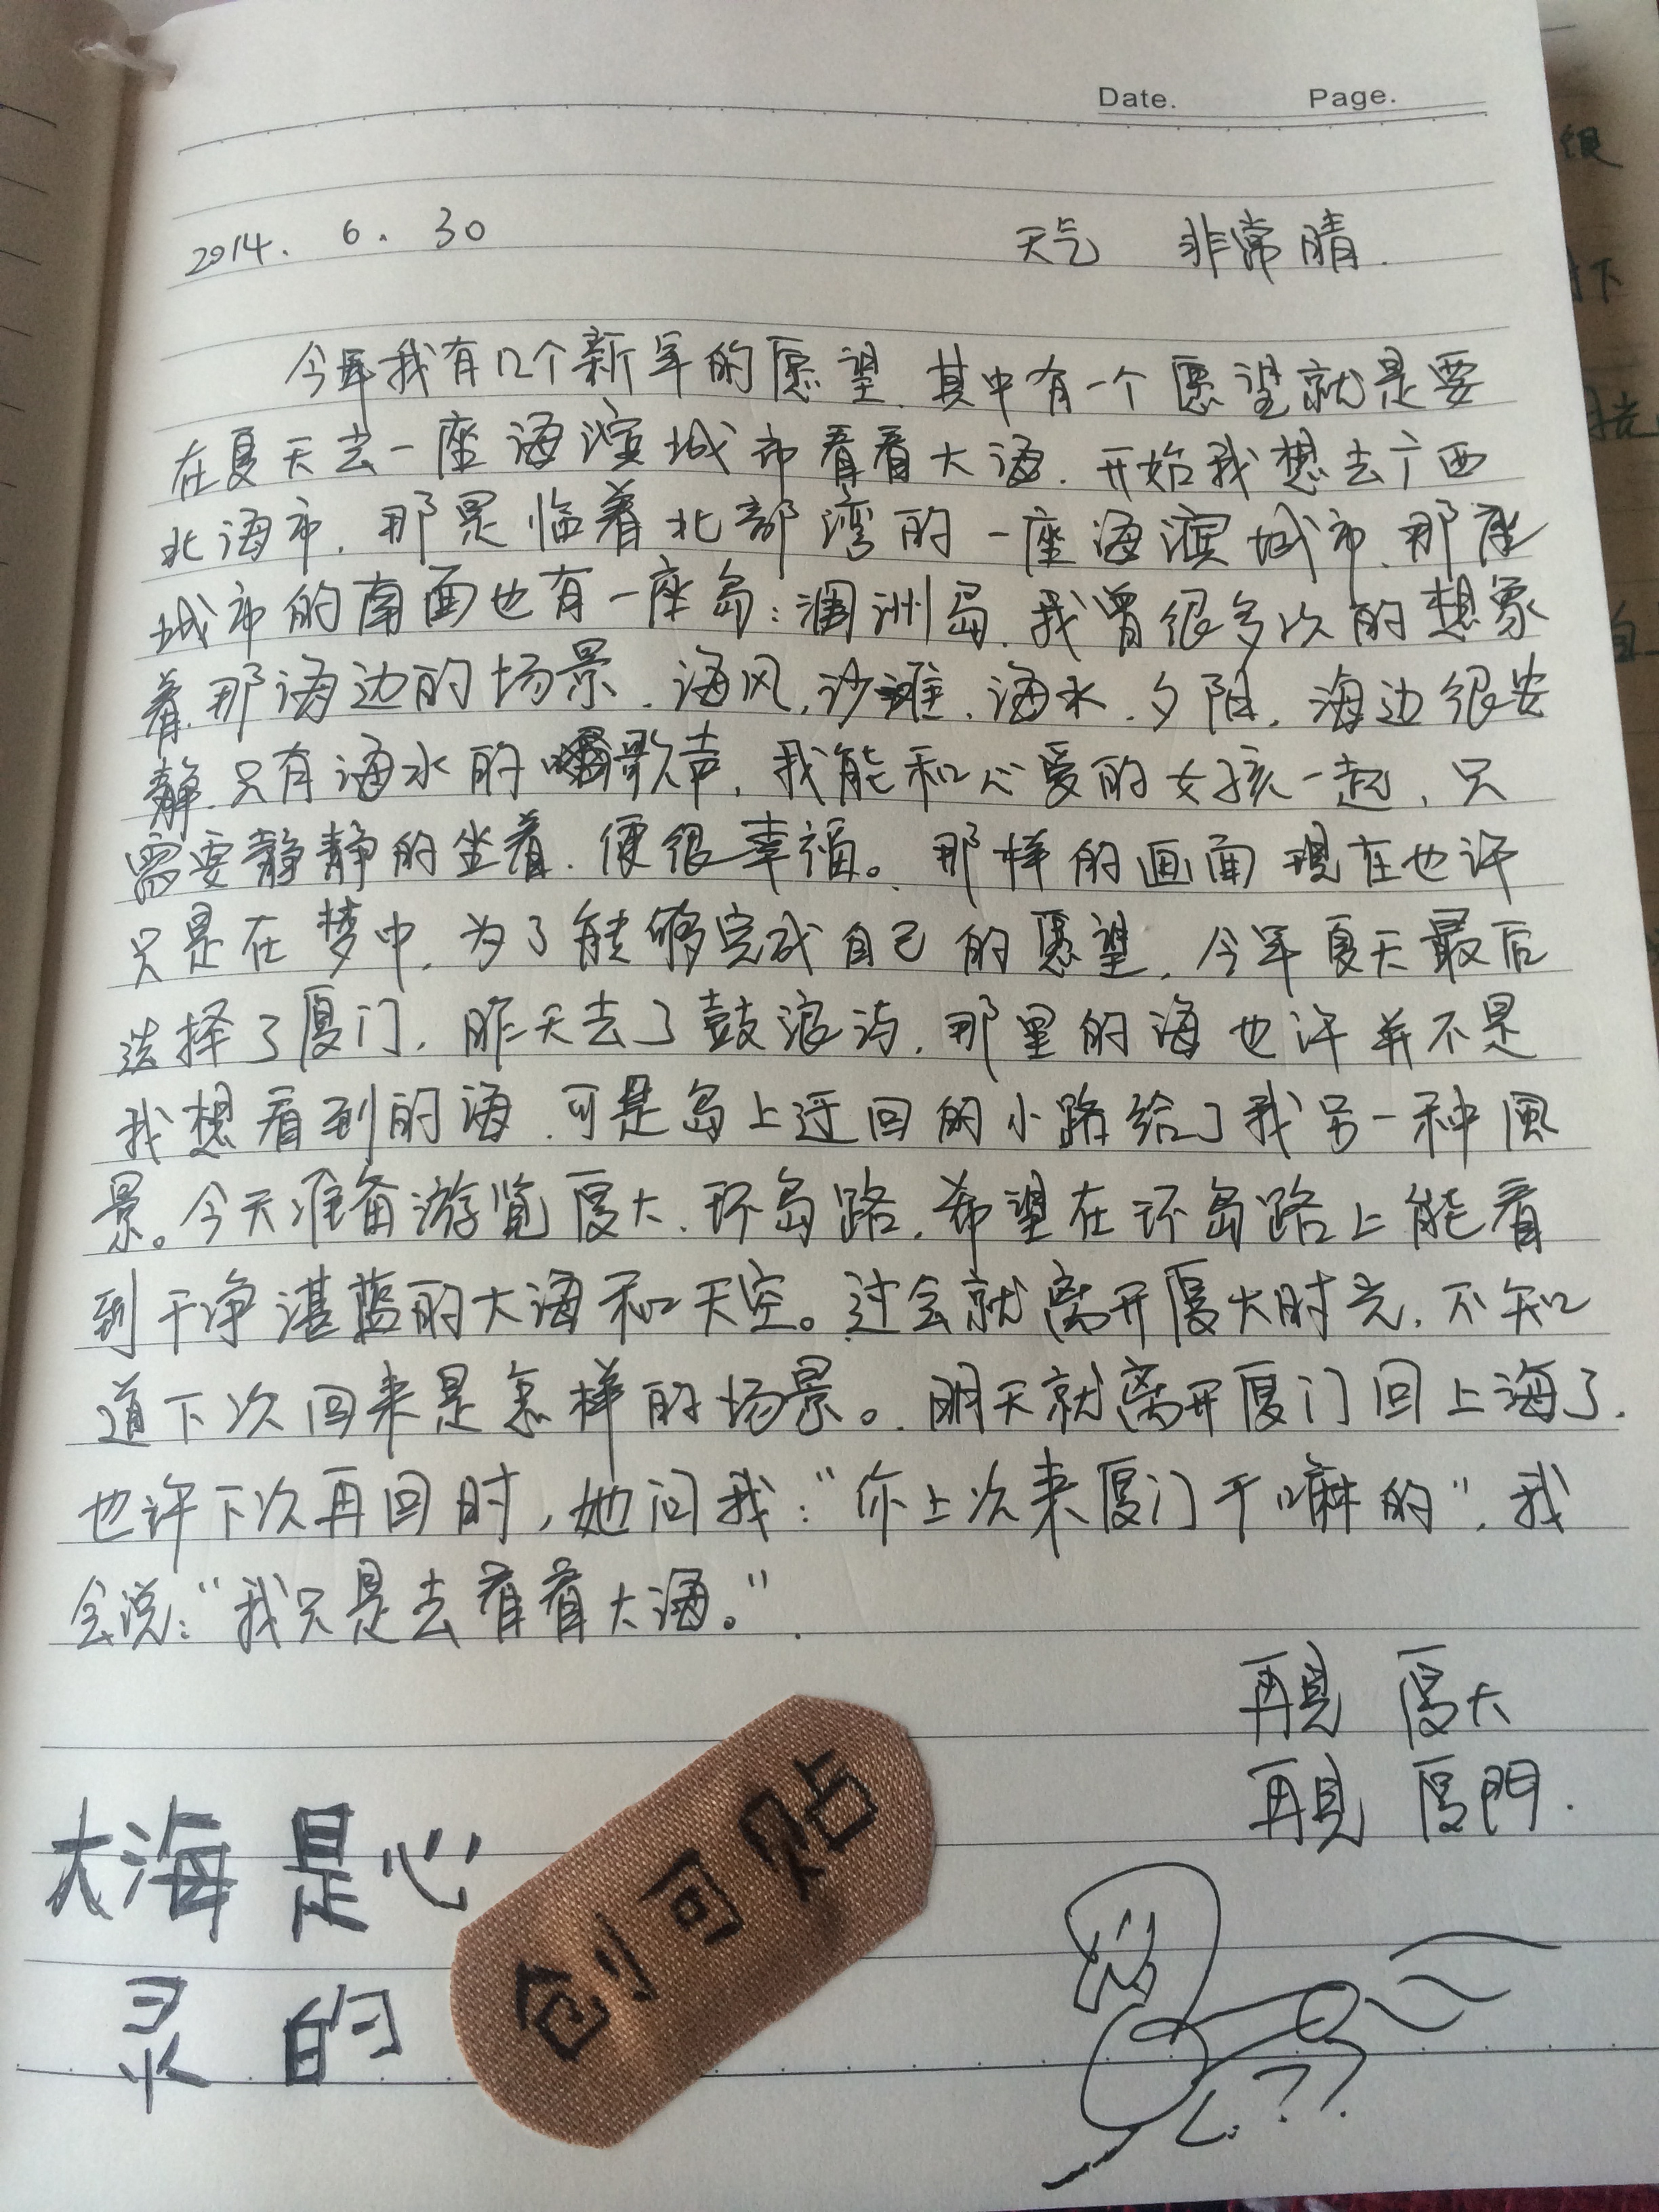 Date. Page.
2014. 6. 30 天气 非常晴.
今年我有几个新年的愿望.其中有一个愿望就是要
在夏天去一座海滨城市看看大海.开始我想去广西
北海市.那是临着北部湾的一座海滨城市.那座
城市的南面也有一座岛:涠洲岛.我曾很多次的想象
着.那海边的场景.海风.沙滩.海水.夕阳.海边很安
静.只有海水的歌声.我能和心爱的女孩一起,只
需要静静的坐着.便很幸福。那样的画面现在也许
只是在梦中.为了能够完成自己的愿望.今年夏天最后
选择了厦门.昨天去了鼓浪屿.那里的海也许并不是
我想看到的海.可是岛上迂回的小路给了我另一种風
景。今天准备游览厦大.环岛路.希望在环岛路上能看
到干净湛蓝的大海和天空。过会就离开厦大时光.不知
道下次回来是怎样的场景。明天就离开厦门回上海了.
也许下次再回时,她问我:“你上次来厦门干嘛的”.我
会说:“我只是去看看大海。”
再見 厦大
再見 厦門.
大海是心
灵的
创可贴
??